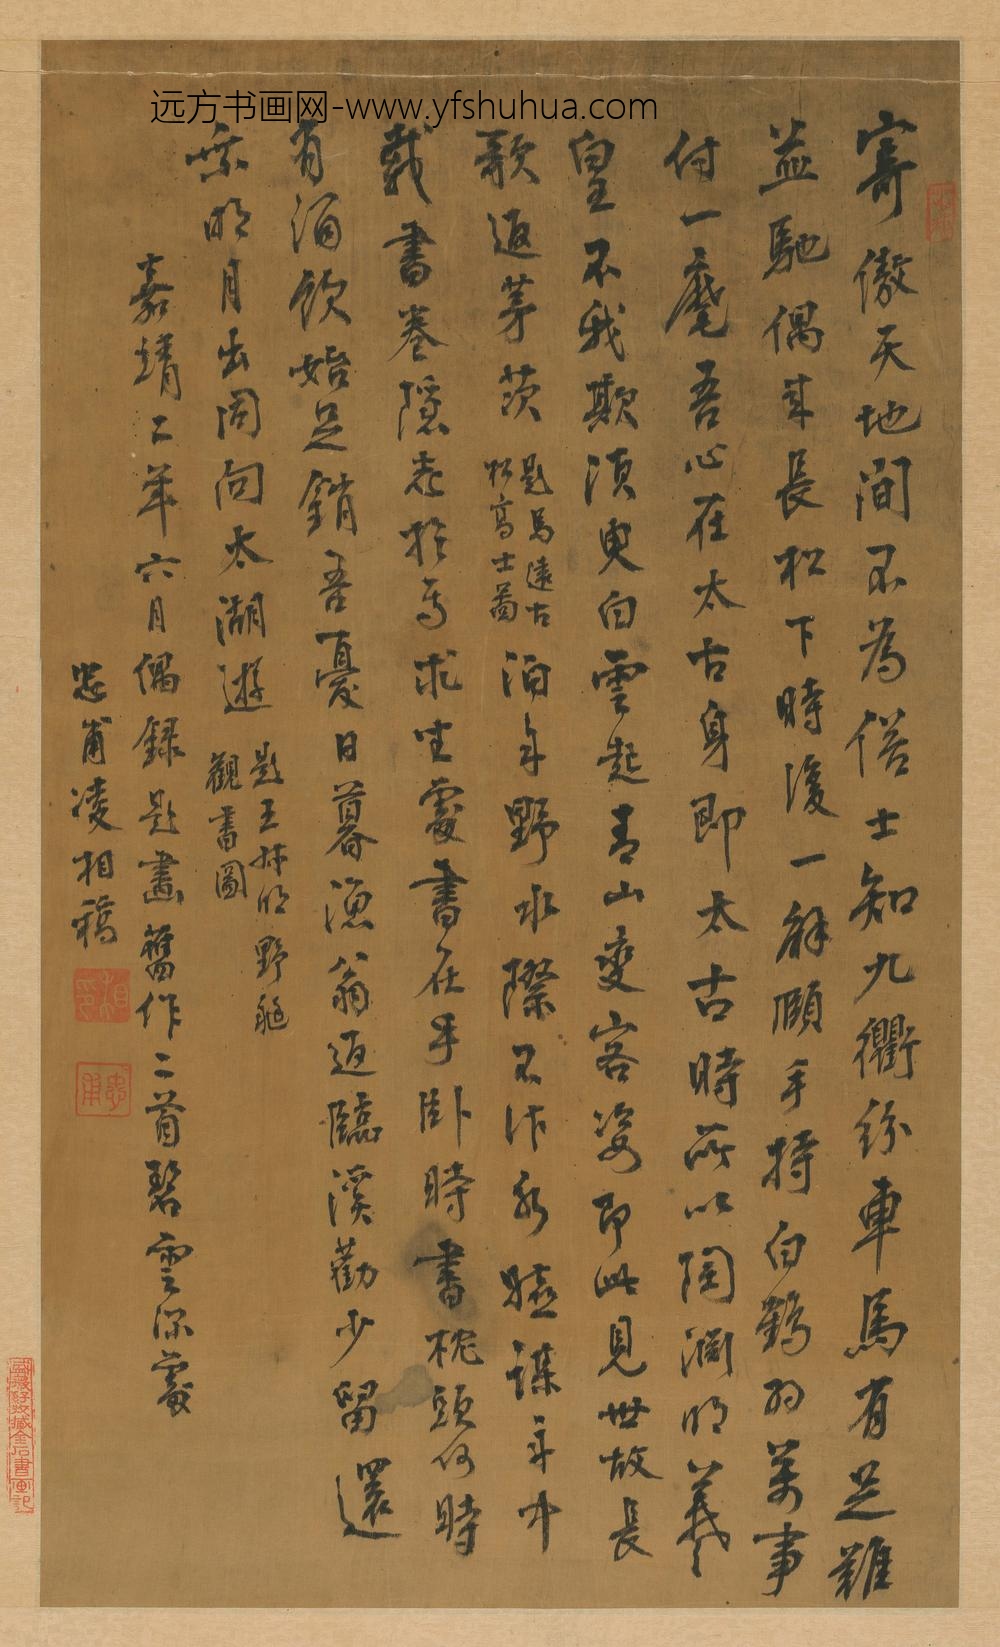 远方书画网-www.yfshuhua.com
寄傲天地間不為俗士知九衢紛車馬有足難
益馳偶來長松下時復一解頤手持白鶴羽萬事
付一麾吾心在太古身即太古時所以陶淵明羲
皇不我欺須臾白雲起青山變容姿即此見世故長
歌返茅茨
題馬遠古
松高士圖
泊舟野水際不作
謀舟中
載書卷隱志於焉求坐處書在手臥時書枕頭何時
有酒飲始足銷吾憂日暮漁翁返臨溪勸少留還
乘明月出同向太湖遊
題王叔明野航
觀書圖
嘉靖二年六月偶錄題畫舊作二首碧雲深處
忠甫凌相稿
相印
忠甫
盛晟好收藏金石書画記